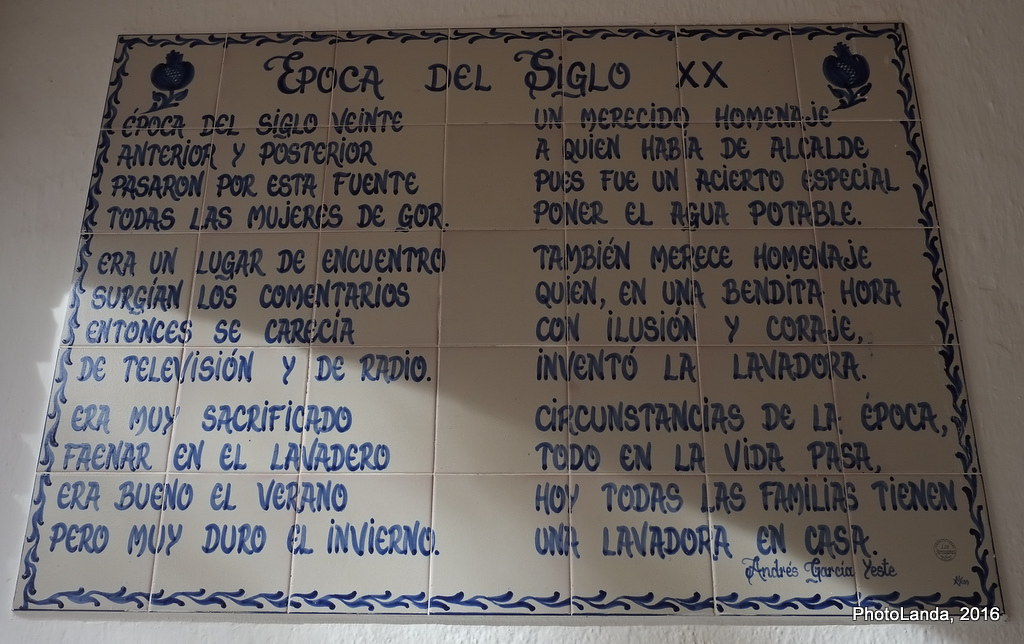 Época del Siglo XX
ÉPOCA DEL SIGLO VEINTE
ANTERIOR Y POSTERIOR
PASARON POR ESTA FUENTE
TODAS LAS MUJERES DE GOR.
ERA UN LUGAR DE ENCUENTRO
SURGÍAN LOS COMENTARIOS
ENTONCES SE CARECÍA
DE TELEVISIÓN Y DE RADIO.
ERA MUY SACRIFICADO
FAENAR EN EL LAVADERO
ERA BUENO EL VERANO
PERO MUY DURO EL INVIERNO.
UN MERECIDO HOMENAJE
A QUIEN HABÍA DE ALCALDE
PUES FUE UN ACIERTO ESPECIAL
PONER EL AGUA POTABLE.
TAMBIÉN MERECE HOMENAJE
QUIEN, EN UNA BENDITA HORA
CON ILUSIÓN Y CORAJE,
INVENTÓ LA LAVADORA.
CIRCUNSTANCIAS DE LA ÉPOCA,
TODO EN LA VIDA PASA,
HOY TODAS LAS FAMILIAS TIENEN
UNA LAVADORA EN CASA.
Andrés García Yeste
PhotoLanda, 2016